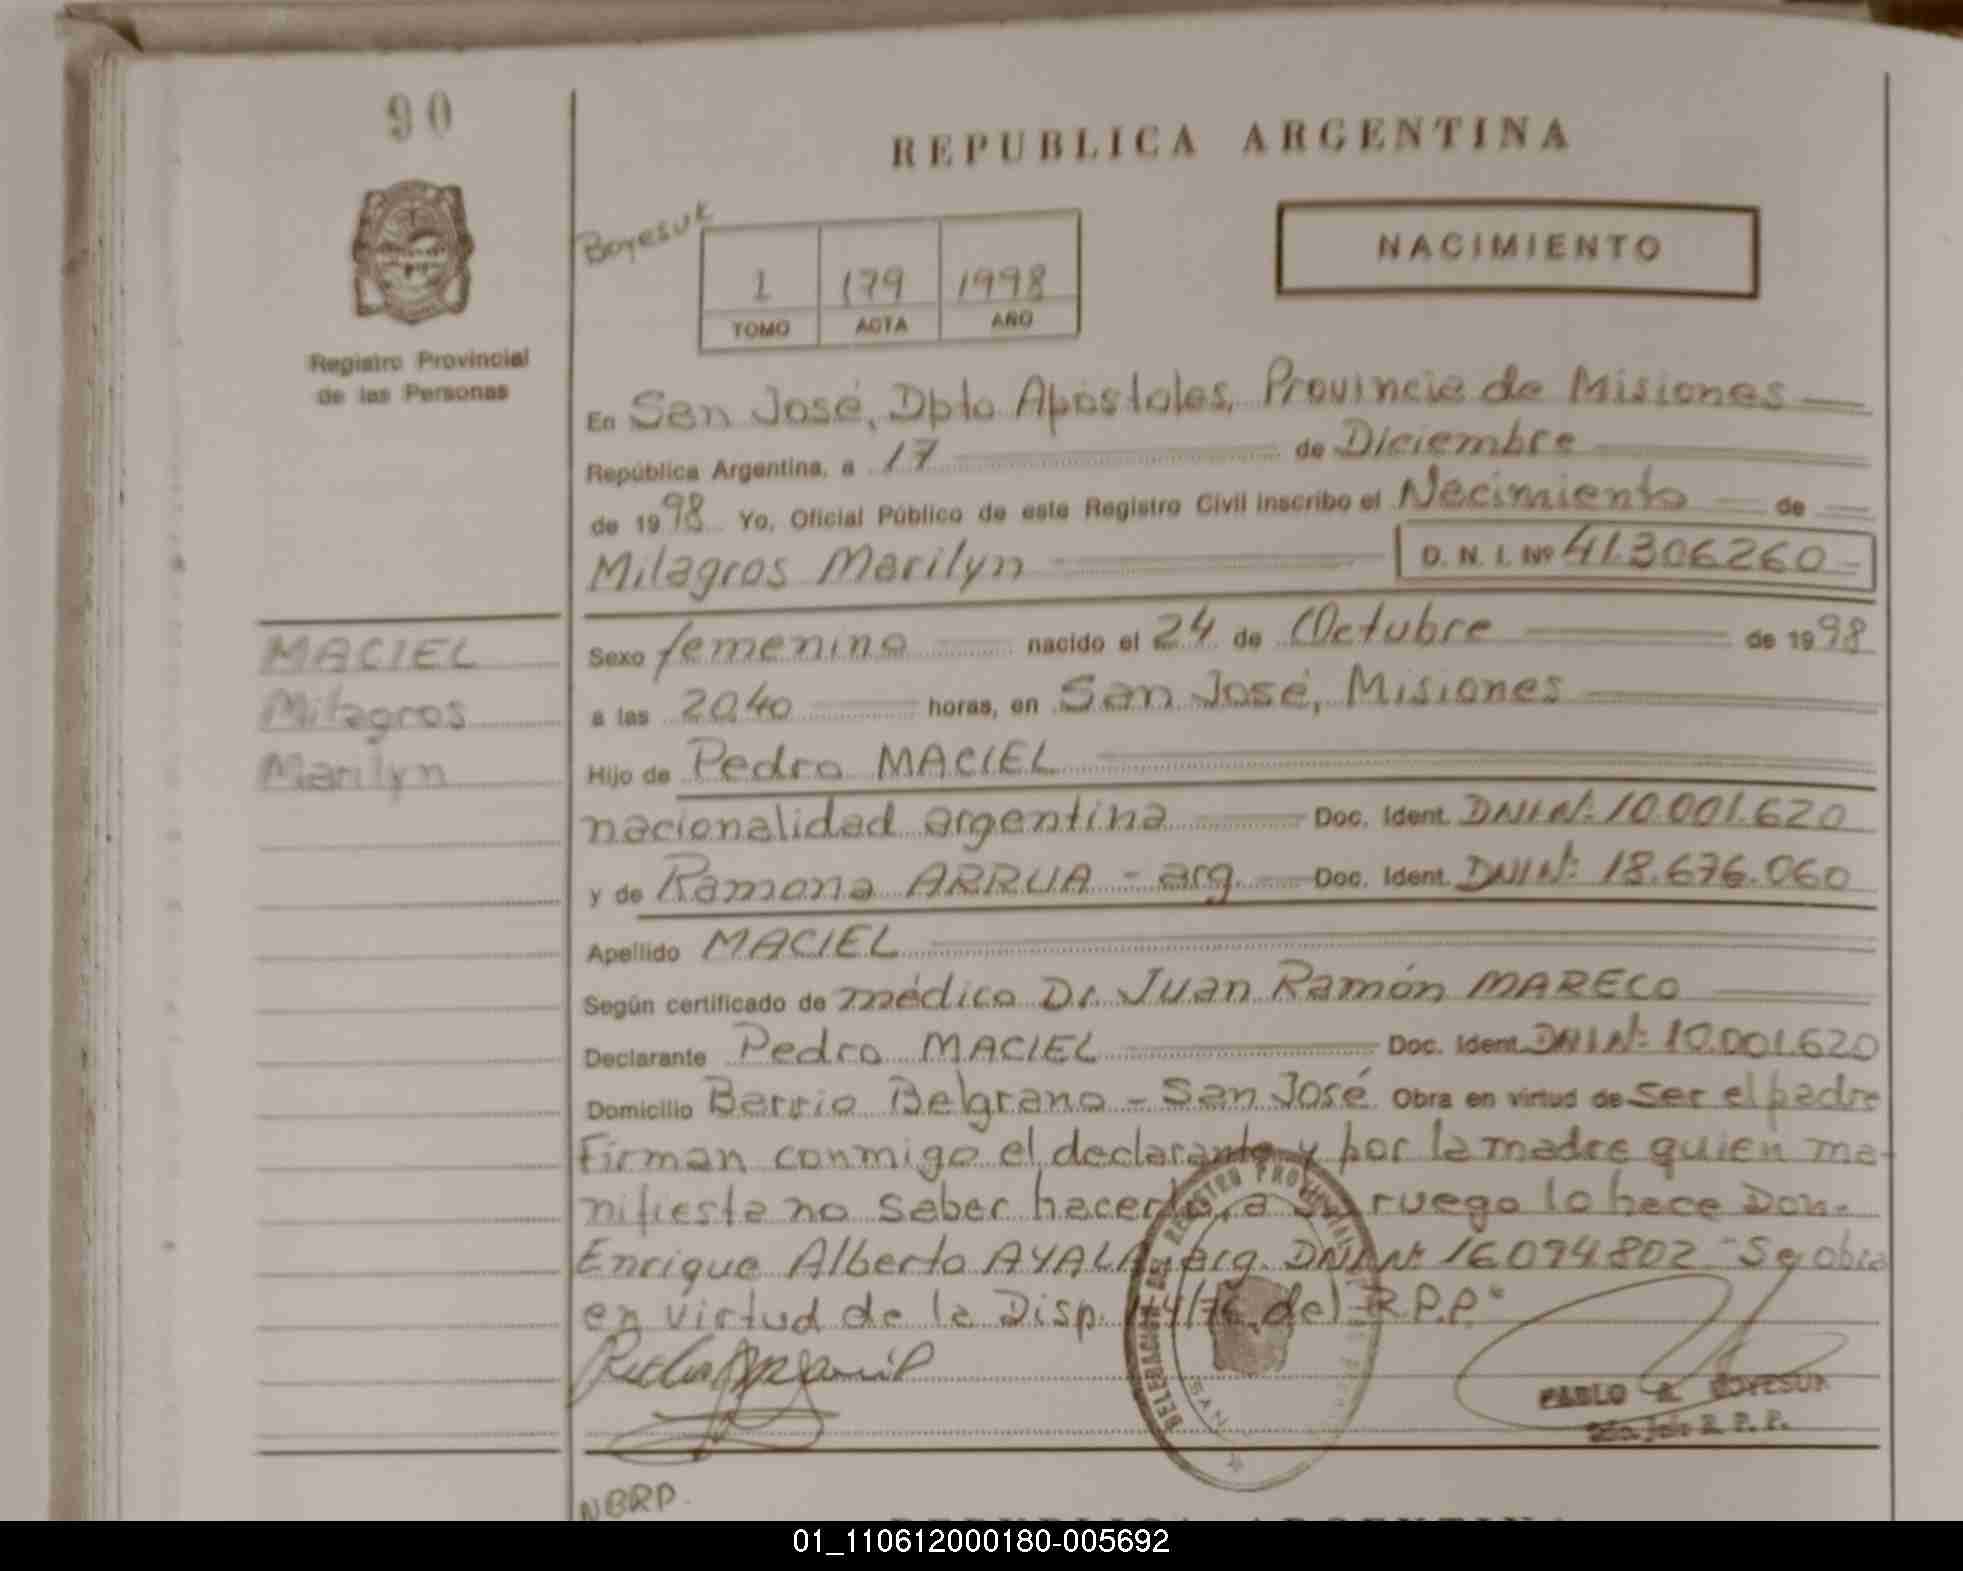 90
REPUBLICA ARGENTINA
Boyesuk
NACIMIENTO
1 179 1998
TOMO ACTA AÑO
Registro Provincial
de las Personas
En San José, Dpto Apóstoles, Provincia de Misiones
República Argentina, a 17 de Diciembre
de 1998 Yo, Oficial Público de este Registro Civil inscribo el Nacimiento de
Milagros Marilyn D. N. I. Nº 41.306260
MACIEL
Milagros
Marilyn
Sexo femenino nacido el 24 de Octubre de 1998
a las 20,40 horas, en San José, Misiones
Hijo de Pedro MACIEL
nacionalidad argentina Doc. Ident. DNI Nº: 10.001.620
y de Ramona ARRUA - arg. Doc. Ident. DNI Nº: 18.676.060
Apellido MACIEL
Según certificado de médico Dr. Juan Ramón MARECO
Declarante Pedro MACIEL Doc. Ident. DNI Nº: 10.001.620
Domicilio Barrio Belgrano - San José Obra en virtud de ser el padre
Firman conmigo el declarante y por la madre quien ma-
nifiesta no saber hacerlo, a su ruego lo hace Don
Enrique Alberto AYALA, arg. DNI Nº 16.094.802 "Se obra
en virtud de la Disp. /76 del R.P.P."
DELEGACION DEL REGISTRO PROVINCIAL DE LAS PERSONAS
SAN
PABLO BOYESUK
R. P. P.
NBRP.
REPUBLICA ARGENTINA
01_110612000180-005692